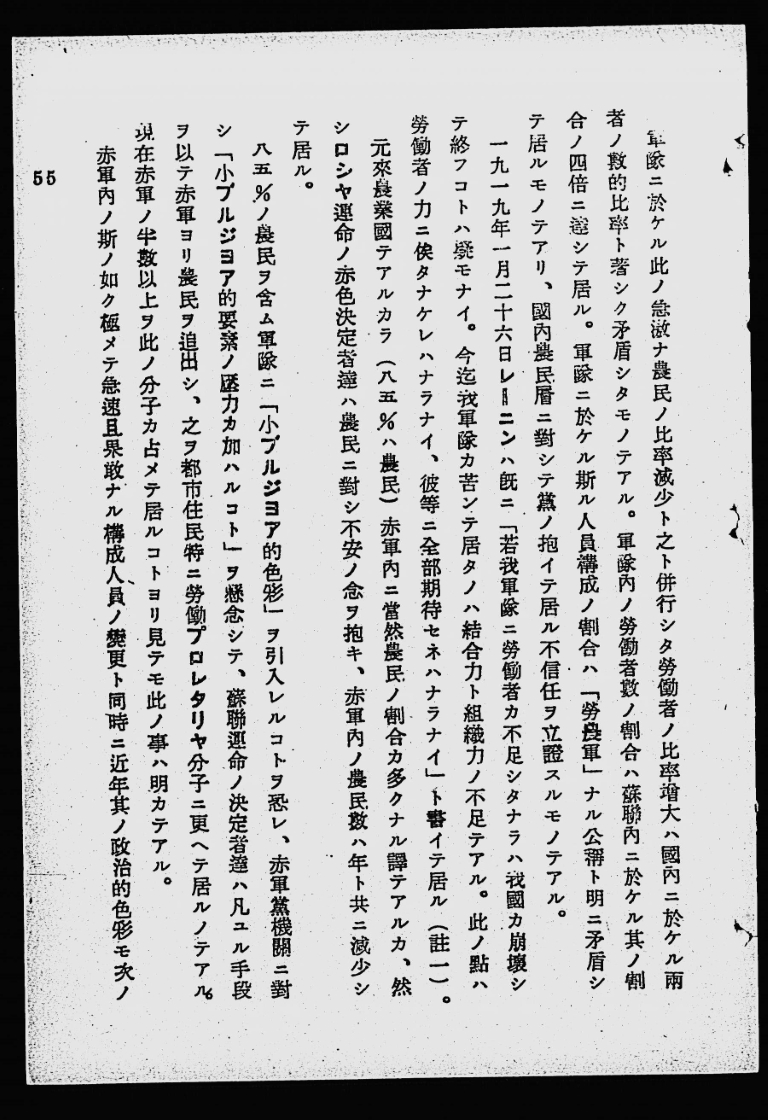 軍隊ニ於ケル此ノ急激ナ農民ノ比率減少ト之ト併行シタ勞働者ノ比率増大ハ國內ニ於ケル兩
者ノ數的比率ト著シク矛盾シタモノテアル。軍隊內ノ勞働者數ノ割合ハ蘇聯內ニ於ケル其ノ割
合ノ四倍ニ達シテ居ル。軍隊ニ於ケル斯ル人員構成ノ割合ハ「勞農軍」ナル公稱ト明ニ矛盾シ
テ居ルモノテアリ、國內農民層ニ對シテ黨ノ抱イテ居ル不信任ヲ立證スルモノテアル。
一九一九年一月二十六日レーニンハ旣ニ「若我軍隊ニ勞働者カ不足シタナラハ我國カ崩壞シ
テ終フコトハ疑モナイ。今迄我軍隊カ苦ンテ居タノハ結合力ト組織力ノ不足テアル。此ノ點ハ
勞働者ノ力ニ俟タナケレハナラナイ、彼等ニ全部期待セネハナラナイ」ト書イテ居ル(註一)。
元來農業國テアルカラ(八五%ハ農民)赤軍內ニ當然農民ノ割合カ多クナル譯テアルカ、然
シロシヤ運命ノ赤色決定者達ハ農民ニ對シ不安ノ念ヲ抱キ、赤軍內ノ農民數ハ年ト共ニ減少シ
テ居ル。
八五%ノ農民ヲ含ム軍隊ニ「小ブルジヨア的色彩」ヲ引入レルコトヲ恐レ、赤軍黨機關ニ對
シ「小ブルジヨア的要素ノ壓力カ加ハルコト」ヲ懸念シテ、蘇聯運命ノ決定者達ハ凡ユル手段
ヲ以テ赤軍ヨリ農民ヲ追出シ、之ヲ都市住民特ニ勞働プロレタリヤ分子ニ更ヘテ居ルノテアル。
現在赤軍ノ半數以上ヲ此ノ分子カ占メテ居ルコトヨリ見テモ此ノ事ハ明カテアル。
赤軍內ノ斯ノ如ク極メテ急速且果敢ナル構成人員ノ變更ト同時ニ近年其ノ政治的色彩モ次ノ
55